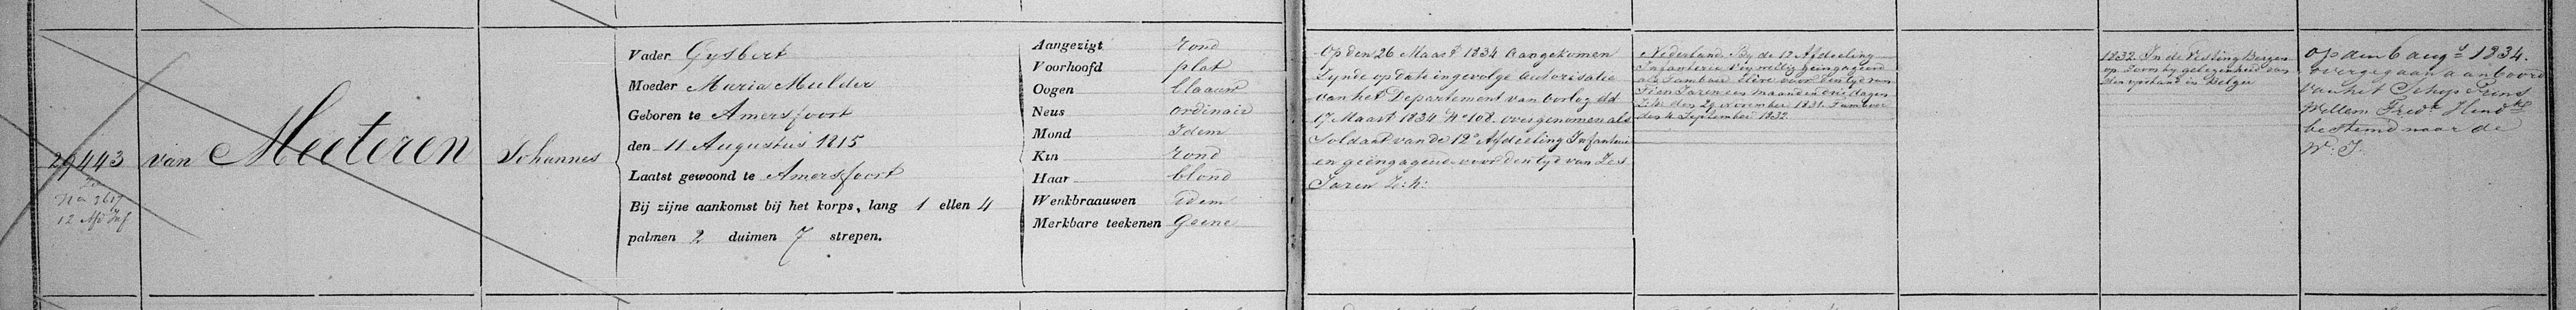 29443
Zie
No 3617
12 Afd Inf
van Meeteren
Johannes
Vader Gysbert
Moeder Maria Mulder
Geboren te Amersfoort
den 11 Augustus 1815
Laatst gewoond te Amersfoort
Bij zijne aankomst bij het korps, lang 1 ellen 4
palmen 2 duimen 7 strepen.
Aangezigt rond
Voorhoofd plat
Oogen blaauw
Neus ordinair
Mond Idem
Kin rond
Haar blond
Wenkbraauwen Idem
Merkbare teekenen Geene
Op den 26 Maart 1834 Aangekomen
Zynde op dato ingevolge Autorisatie
van het Departement van Oorlog dd
17 Maart 1834 No 108. overgenomen als
Soldaat van de 12e Afdeeling Infanterie
en geëngageerd voor den tyd van Zes
Jaren Z: h:
Nederland. By de 12 Afdeeling
Infanterie Vrywillig geengageerd
als Tamboer Eleve voor den tyd van
Tien Jaren een maand en drie dagen
Z. h. den 29 November 1831. Tamboer
den 4 September 1832.
1832. In de Vesting Bergen
op Zoom by gelegenheid van
den opstand in Belgie
Op den 6 augs 1834.
overgegaan aan boord
van het Schip Prins
Willem Fredk Hendk
bestemd naar de
W: I: